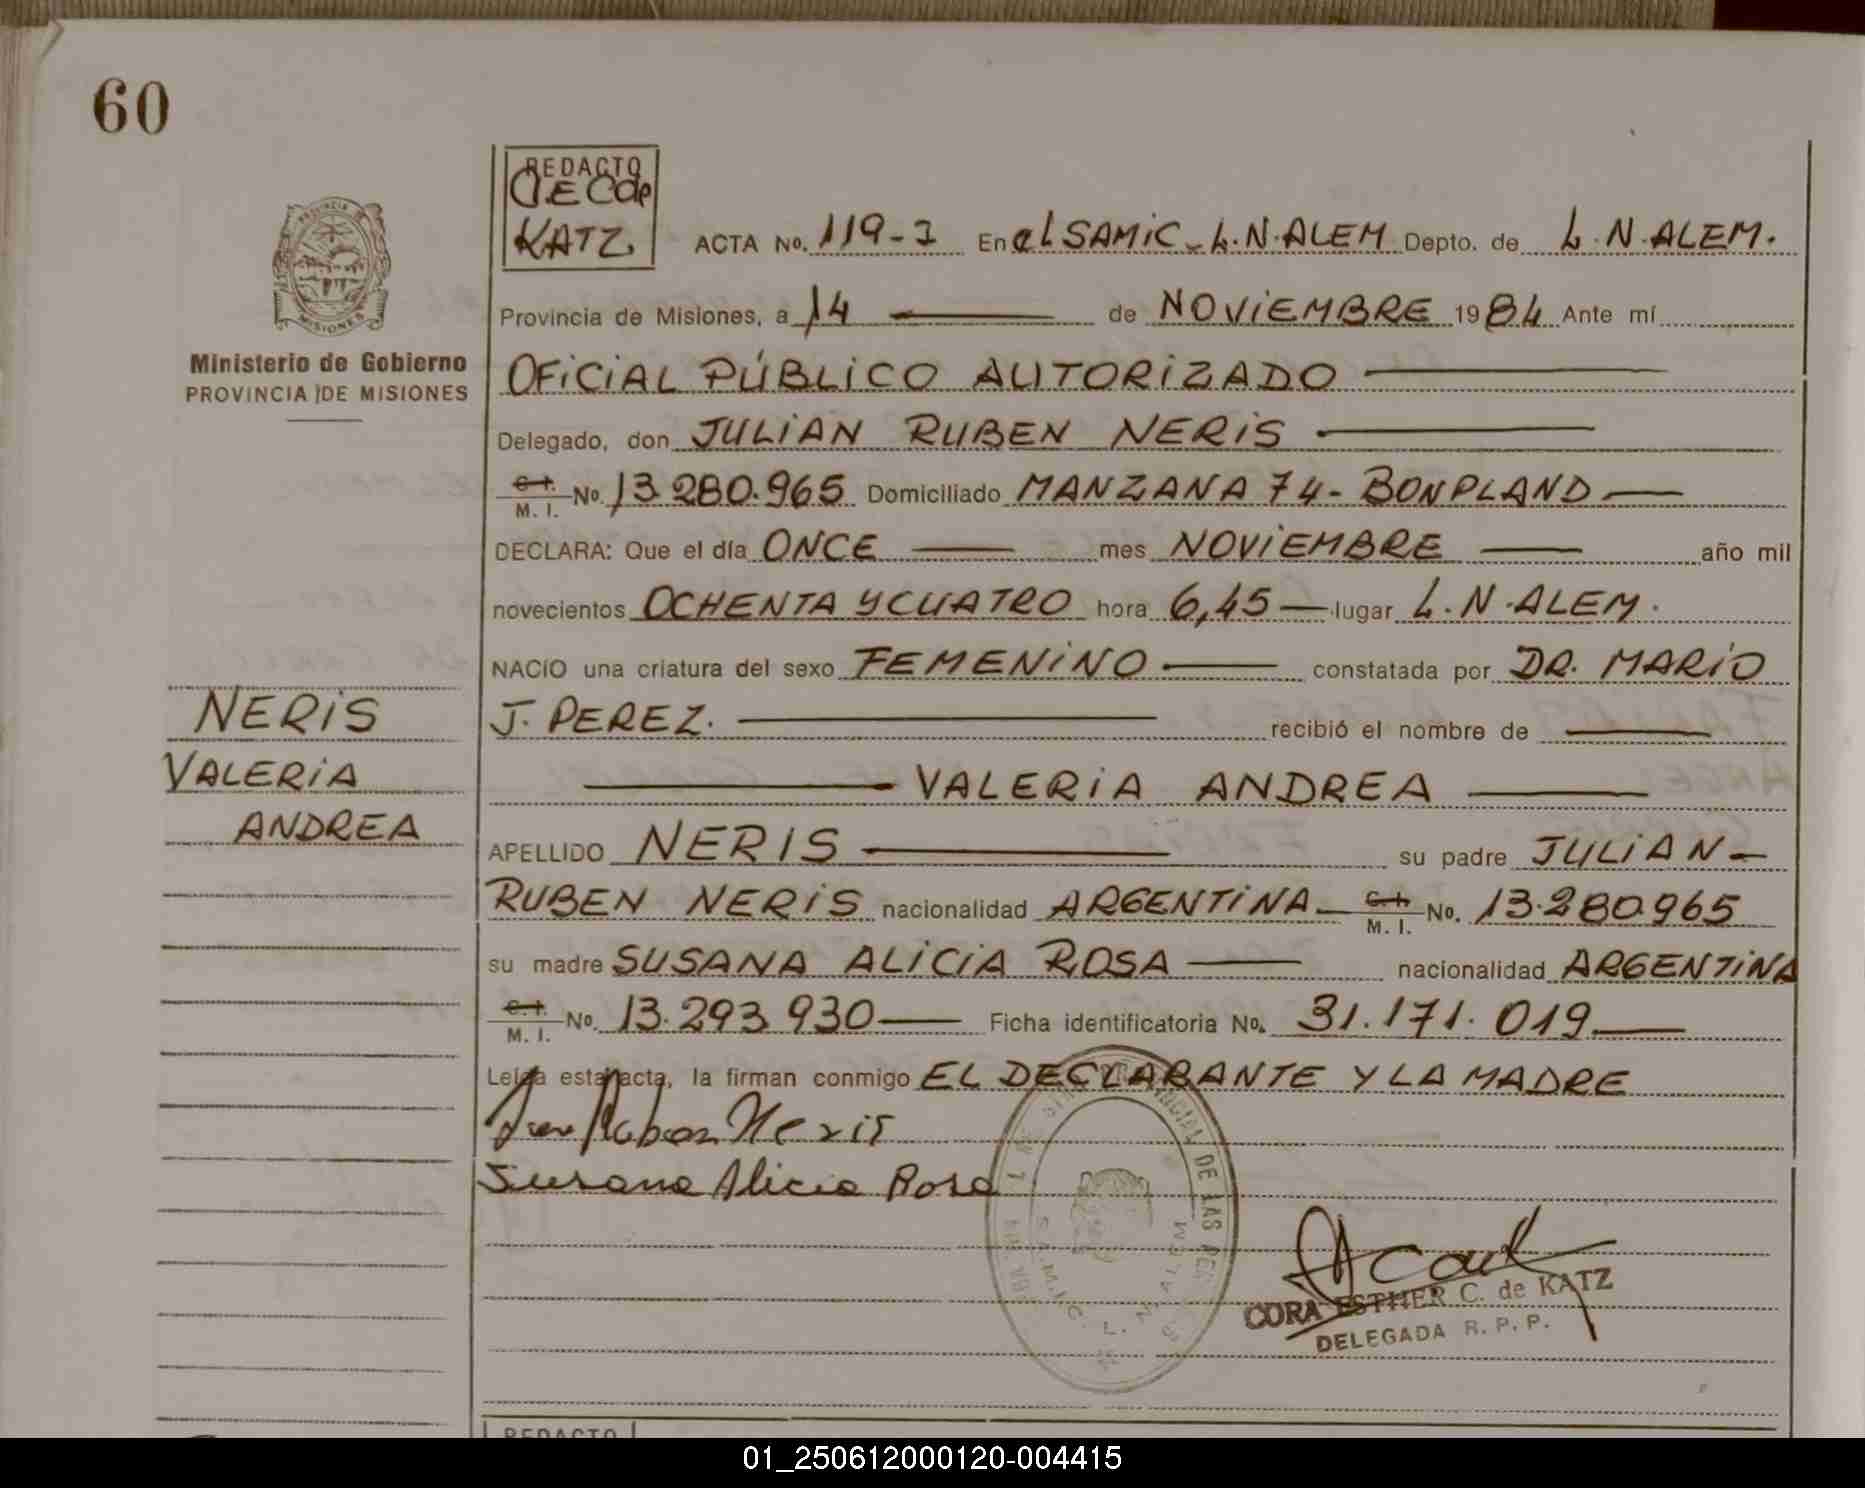 60
REDACTO
CEC de
KATZ.
ACTA No. 119-I En el SAMIC - L.N.ALEM Depto. de L.N.ALEM.
Provincia de Misiones, a 14 — de NOVIEMBRE 1984 Ante mí
Ministerio de Gobierno
PROVINCIA DE MISIONES
OFICIAL PÚBLICO AUTORIZADO —
Delegado, don JULIAN RUBEN NERIS —
C.I. M.I. No. 13.280.965 Domiciliado MANZANA 74 - BONPLAND —
DECLARA: Que el día ONCE — mes NOVIEMBRE — año mil
novecientos OCHENTA Y CUATRO hora 6,45 — lugar L.N.ALEM.
NACIO una criatura del sexo FEMENINO — constatada por DR. MARIO
J. PEREZ. — recibió el nombre de —
— VALERIA ANDREA —
NERIS
VALERIA
ANDREA
APELLIDO NERIS — su padre JULIAN —
RUBEN NERIS nacionalidad ARGENTINA — C.I. M.I. No. 13.280.965
su madre SUSANA ALICIA ROSA — nacionalidad ARGENTINA
C.I. M.I. No. 13.293.930 — Ficha identificatoria No. 31.171.019 —
Leída esta acta, la firman conmigo EL DECLARANTE Y LA MADRE
Ruben Neris
Susana Alicia Rosa
PROVINCIAL DE LAS PER
S.A.M.I.C. L. N. ALEM
CORA ESTHER C. de KATZ
DELEGADA R. P. P.
REDACTO
01_250612000120-004415